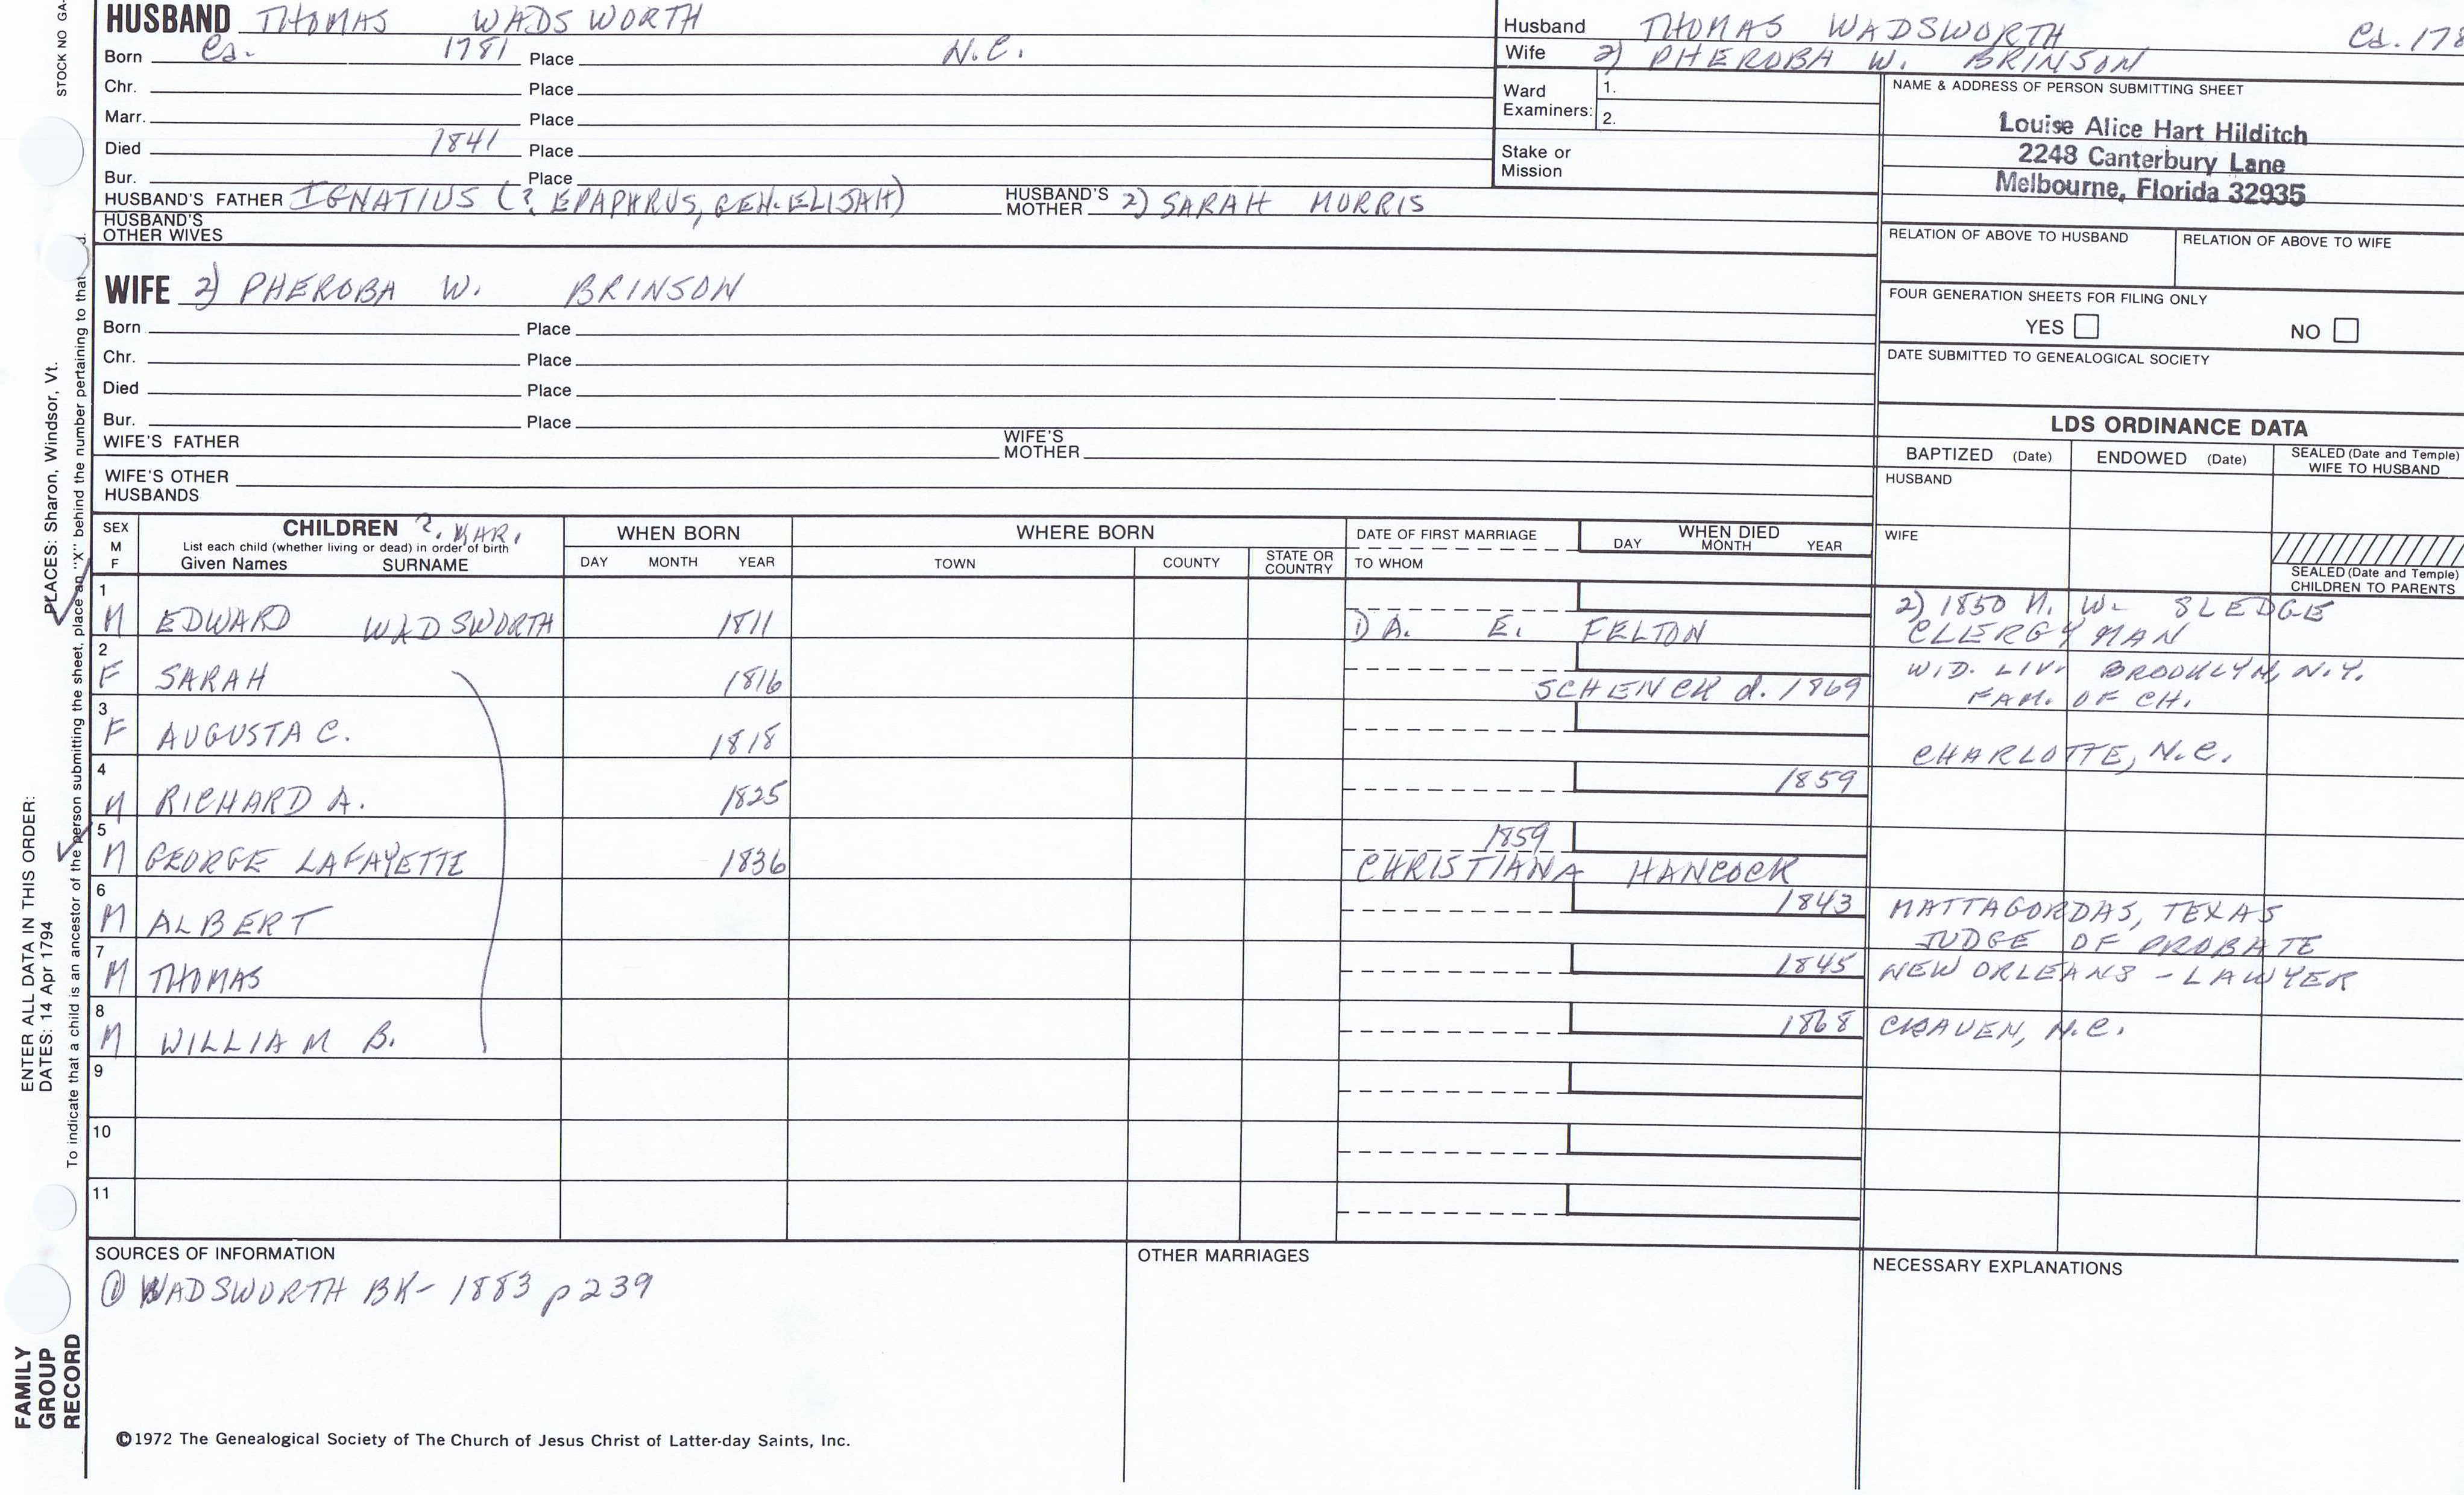 HUSBAND THOMAS WADSWORTH
Born Ca. 1781 Place N.C.
Chr. Place
Marr. Place
Died 1841 Place
Bur. Place
HUSBAND'S FATHER IGNATIUS (?, EPAPHRUS, GEN. ELIJAH) HUSBAND'S MOTHER 2) SARAH MORRIS
HUSBAND'S OTHER WIVES
Husband THOMAS WADSWORTH Ca. 178
Wife 2) PHEROBA W. BRINSON
Ward Examiners: 1.
2.
Stake or Mission
NAME & ADDRESS OF PERSON SUBMITTING SHEET
Louise Alice Hart Hilditch
2248 Canterbury Lane
Melbourne, Florida 32935
RELATION OF ABOVE TO HUSBAND RELATION OF ABOVE TO WIFE
FOUR GENERATION SHEETS FOR FILING ONLY
YES NO
DATE SUBMITTED TO GENEALOGICAL SOCIETY
WIFE 2) PHEROBA W. BRINSON
Born Place
Chr. Place
Died Place
Bur. Place
WIFE'S FATHER WIFE'S MOTHER
WIFE'S OTHER HUSBANDS
LDS ORDINANCE DATA
BAPTIZED (Date) ENDOWED (Date) SEALED (Date and Temple) WIFE TO HUSBAND
HUSBAND
WIFE
SEALED (Date and Temple) CHILDREN TO PARENTS
SEX M F
CHILDREN ?
List each child (whether living or dead) in order of birth
Given Names SURNAME
WHEN BORN
DAY MONTH YEAR
WHERE BORN
TOWN COUNTY STATE OR COUNTRY
DATE OF FIRST MARRIAGE
TO WHOM
WHEN DIED
DAY MONTH YEAR
1 M EDWARD WADSWORTH 1811 1) A. E. FELTON 2) 1850 M. W. SLEDGE
CLERGYMAN
2 F SARAH 1816 SCHENCK d. 1869 WID. LIV. BROOKLYN, N.Y.
FAM. OF CH.
3 F AUGUSTA C. 1818 CHARLOTTE, N.C.
4 M RICHARD A. 1825 1859
5 M GEORGE LAFAYETTE 1836 1859
CHRISTIANA HANCOCK
6 M ALBERT 1843 MATTAGORDAS, TEXAS
JUDGE OF PROBATE
7 M THOMAS 1845 NEW ORLEANS - LAWYER
8 M WILLIAM B. 1868 CRAVEN, N.C.
9
10
11
SOURCES OF INFORMATION
① WADSWORTH BK- 1883 p 239
OTHER MARRIAGES
NECESSARY EXPLANATIONS
©1972 The Genealogical Society of The Church of Jesus Christ of Latter-day Saints, Inc.
STOCK NO GA-
PLACES: Sharon, Windsor, Vt.
ENTER ALL DATA IN THIS ORDER:
DATES: 14 Apr 1794
To indicate that a child is an ancestor of the person submitting the sheet, place an "X" behind the number pertaining to that d.
FAMILY
GROUP
RECORD